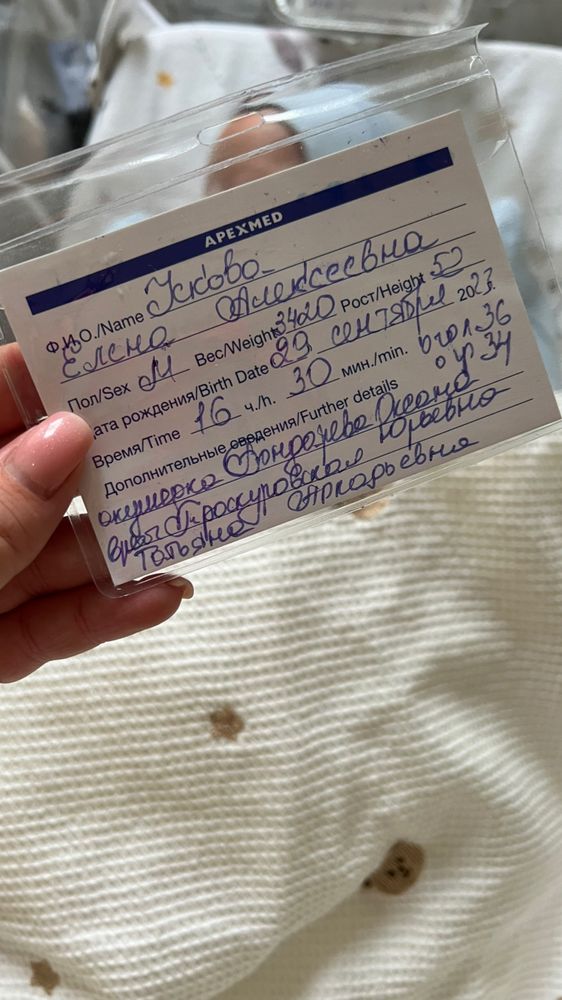 APEXMED
Ф.И.О./Name Ускова
Елена Алексеевна
Пол/Sex М Вес/Weight 3420 Рост/Height 52
Дата рождения/Birth Date 29 сентября 2023
Время/Time 16 ч./h. 30 мин./min. огол 36
Дополнительные сведения/Further details огр 34
акушерка Оксана Юрьевна
врач Проскуровская
Татьяна Аркадьевна